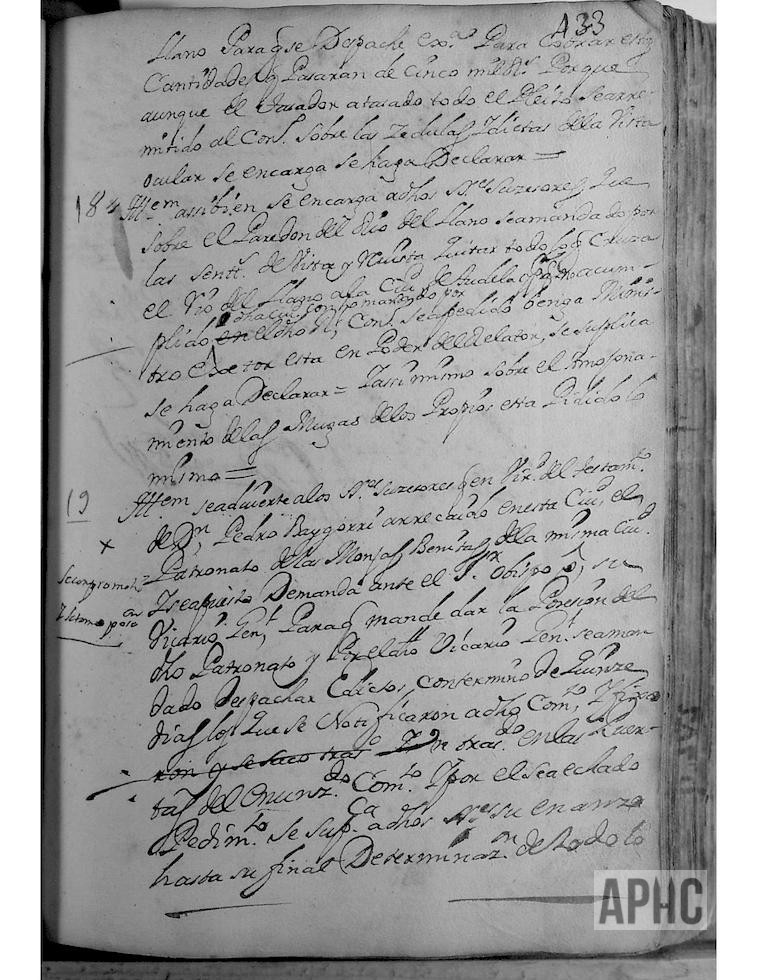 433
llano Para q se Despache ex.ª Para Cobrar estas
Cantidades q Pasaran de Cinco mill Rs. Porque
aunque el tasador a tasado todo el Pleito se a rre-
mitido al Cons. sobre las Zedulas I dietas de la Vista
ocular se encarga se haga Declarar =
18
Ittem assibien se encarga a dhos SSres Suzesores Que
sobre el Paredon del Rio del llano se a mandado por
las sentt.s de Vista y Reuista Quitar todo lo q Cruza
el Rio del llano a la Ciud de Tudela y Por no a cum-
plido en el dho Rl Cons. se a pedido benga Minis-
tro Exetor esta en Poder del Relator, se suplica
se haga Declarar = Iassi mismo sobre el Amojona-
miento de las Mugas de los Propios esta Pidido lo
mismo =
19
Ittem se aduierte a los SSres Suzesores q en Vir.d del testam.to
de Dn Pedro Baygorri a rrecaido en esta Ciud el
Patronato de las Monjas Benitas de la misma Ciud.
I se a puesto Demanda ante el Sr Obispo o su
Vicario Gen.l Para q mande dar la Posesion del
dho Patronato y Por el dho Vicario Gen.l se a man-
dado Despachar Edictos con termino de Quinze
dias los Que se Notificaron a dho Com.to I fixa
ron y se saco tras.do en las Puer-
tas del Enunz.do Com.to I por el se a echado
Pedim.to se sup.ca a dhos SSres su enanza
hasta su final Determinaz.on de todo lo
APHC